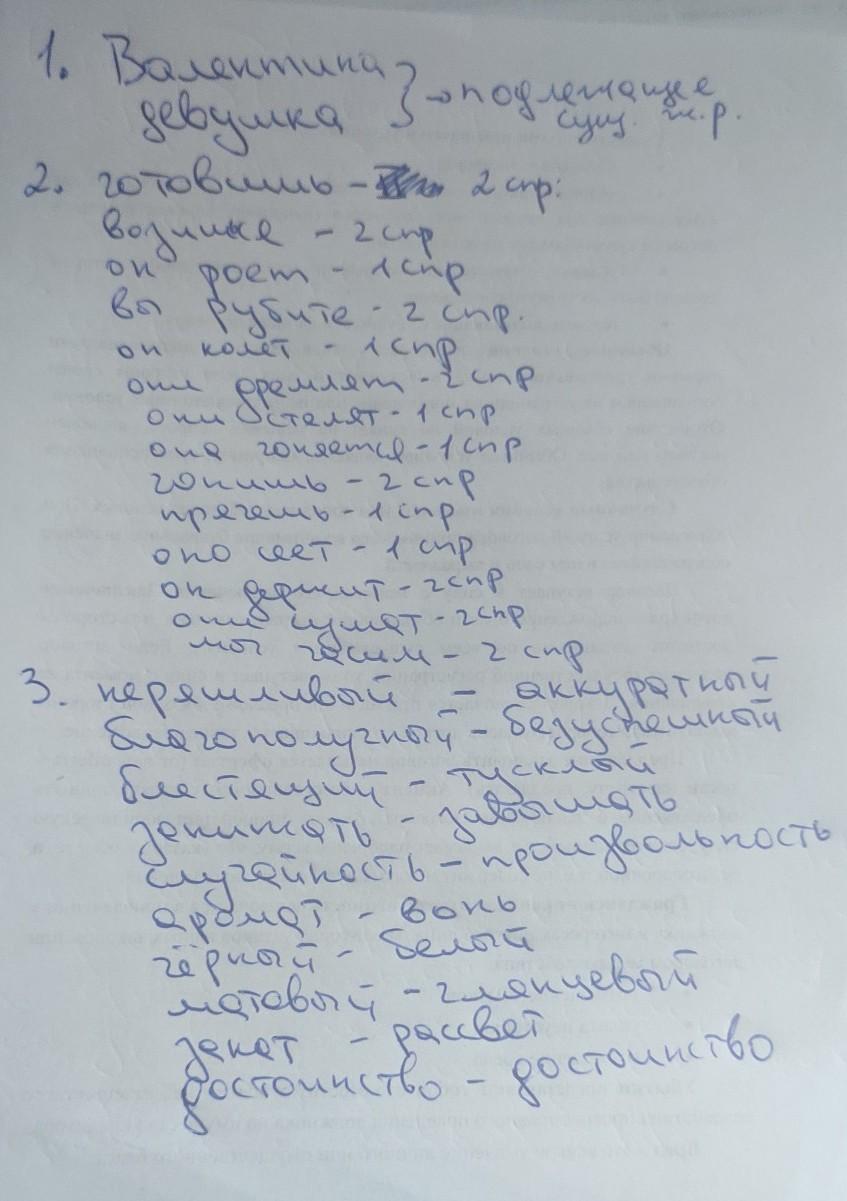 1. Валентина
девушка } → подлежащее
сущ. ж.р.
2. готовишь - 2 спр.
возишь - 2 спр
он роет - 1 спр
вы рубите - 2 спр.
он колет - 1 спр
они дремлят - 2 спр
они стелят - 1 спр
она гоняется - 1 спр
гонишь - 2 спр
прячешь - 1 спр
оно сеет - 1 спр
он держит - 2 спр
они сушат - 2 спр
мы гасим - 2 спр
3. неряшливый - аккуратный
благополучный - безуспешный
блестящий - тусклый
занижать - завышать
случайность - произвольность
аромат - вонь
чёрный - белый
матовый - глянцевый
закат - рассвет
достоинство - достоинство